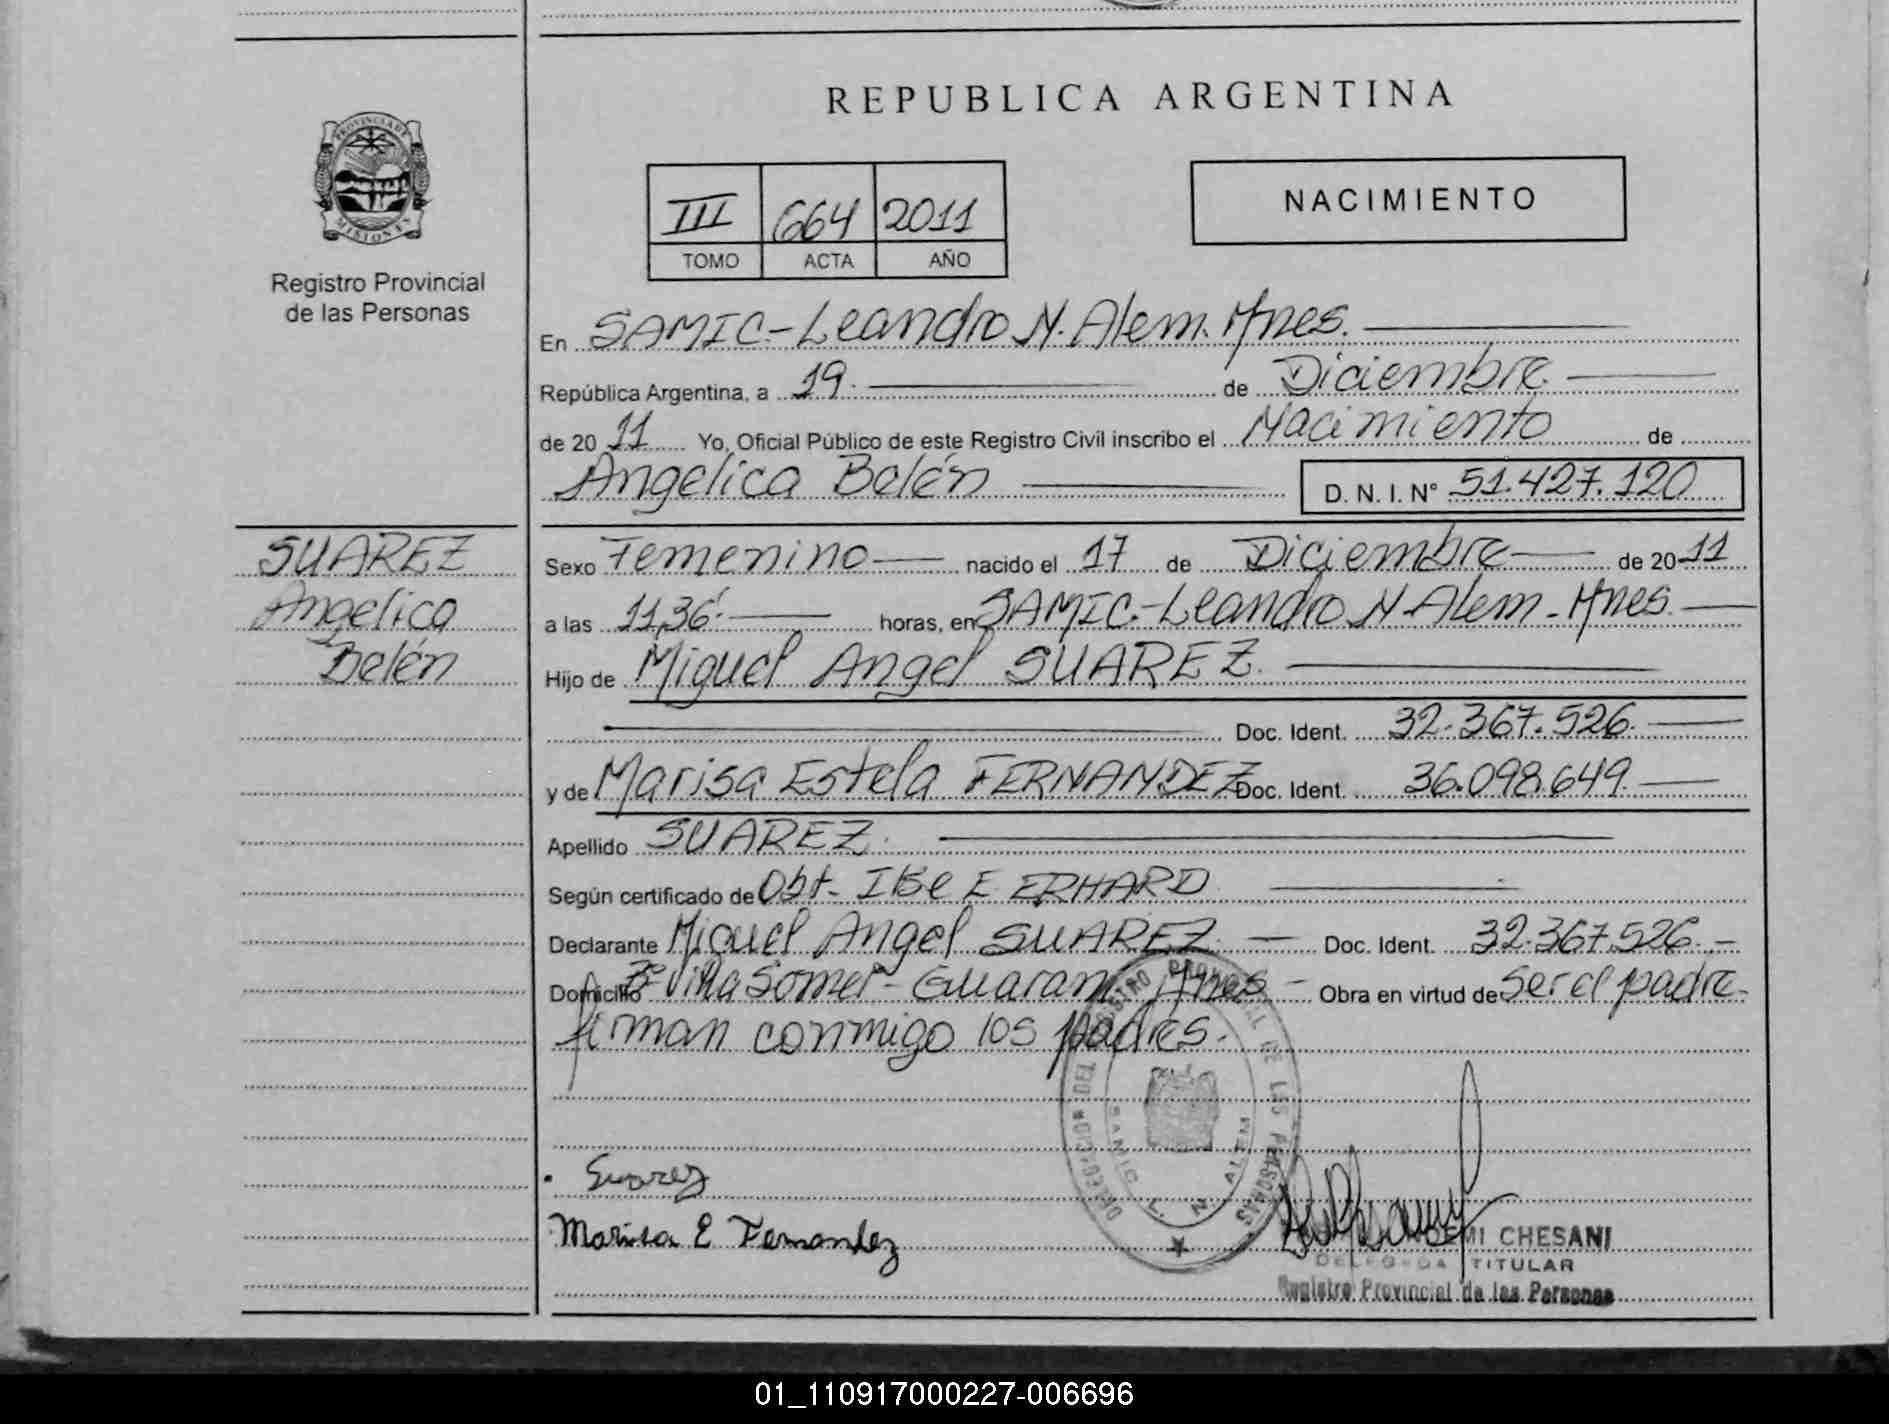 REPUBLICA ARGENTINA
PROVINCIA DE
MISIONES
Registro Provincial
de las Personas
III 664 2011
TOMO ACTA AÑO
NACIMIENTO
En SAMIC-Leandro N. Alem. Mnes.
República Argentina, a 19 de Diciembre
de 2011 Yo, Oficial Público de este Registro Civil inscribo el Nacimiento de
Angelica Belén D. N. I. Nº 51.427.120
SUAREZ
Angelica
Belén
Sexo Femenino nacido el 17 de Diciembre de 2011
a las 11,36 horas, en SAMIC.-Leandro N-Alem-Mnes.
Hijo de Miguel Angel SUAREZ.
Doc. Ident. 32.367.526.
y de Marisa Estela FERNANDEZ Doc. Ident. 36.098.649.
Apellido SUAREZ.
Según certificado de Obt- Ilse E. ERHARD
Declarante Miguel Angel SUAREZ. Doc. Ident. 32.367.526.
Domicilio Villa Somer- Guarani Mnes Obra en virtud de ser el padre
firman conmigo los padres.
DELEGACION DEL REGISTRO PROVINCIAL DE LAS PERSONAS
SAMIC L. N. ALEM
Suarez
Marisa E Fernandez
CHESANI
DELEGADA TITULAR
Registro Provincial de las Personas
01_110917000227-006696